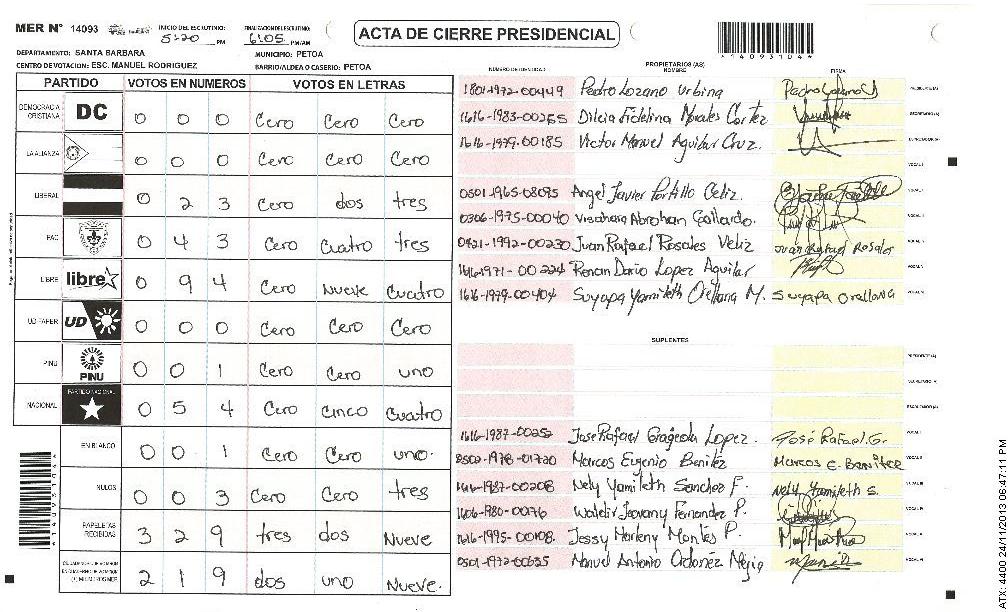 MER N° 14093 INICIO DEL ESCRUTINIO: 5:20 PM FINALIZACION DEL ESCRUTINIO: 6:05 PM/AM ACTA DE CIERRE PRESIDENCIAL
DEPARTAMENTO: SANTA BARBARA MUNICIPIO: PETOA
CENTRO DE VOTACION: ESC. MANUEL RODRIGUEZ BARRIO/ALDEA O CASERIO: PETOA
*14093104*
PARTIDO VOTOS EN NUMEROS VOTOS EN LETRAS
DEMOCRACIA CRISTIANA DC 0 0 0 Cero Cero Cero
LA ALIANZA 0 0 0 Cero Cero Cero
LIBERAL 0 2 3 Cero dos tres
PAC 0 4 3 Cero Cuatro tres
LIBRE libre 0 9 4 Cero Nueve Cuatro
UD-FAPER UD 0 0 0 Cero Cero Cero
PINU PINU 0 0 1 Cero Cero uno
NACIONAL PARTIDO NACIONAL 0 5 4 Cero Cinco Cuatro
EN BLANCO 0 0 1 Cero Cero uno.
NULOS 0 0 3 Cero Cero tres
PAPELETAS RECIBIDAS 3 2 9 tres dos Nueve
2 1 9 dos uno Nueve.
*14093104*
NUMERO DE IDENTIDAD PROPIETARIOS (AS) NOMBRE FIRMA
1801-1972-00449 Pedro Lozano Urbina PRESIDENTE (A)
1616-1983-00265 Dilcia Fidelina Morales Cortez SECRETARIO (A)
1616-1979-00185 Victor Manuel Aguilar Cruz. ESCRUTADOR (A)
VOCAL I
0501-1965-08095 Angel Javier Portillo Celiz.
0306-1975-00040 Abrahan Gallardo.
0421-1992-00230 Juan Rafael Rosales Veliz Juan Rafael Rosales
1616-1971-00224 Renan Dario Lopez Aguilar
1616-1979-00404 Suyapa Yamileth Orellana M. Suyapa Orellana
SUPLENTES
PRESIDENTE (A)
SECRETARIO (A)
ESCRUTADOR (A)
1616-1987-00252 Jose Rafael Grageola Lopez. José Rafael G.
0502-1978-01720 Marcos Eugenio Benitez Marcos E. Benitez
1616-1987-00208 Nely Yamileth Sanchez F. Nely Yamileth S.
1606-1980-0076 Waldir Jeovany Fernandez P.
1616-1995-00108. Jessy Marleny Montes P.
0501-1972-00635 Manuel Antonio Ordoñez Mejia
ATX: 4400 24/11/2013 06:47:11 PM